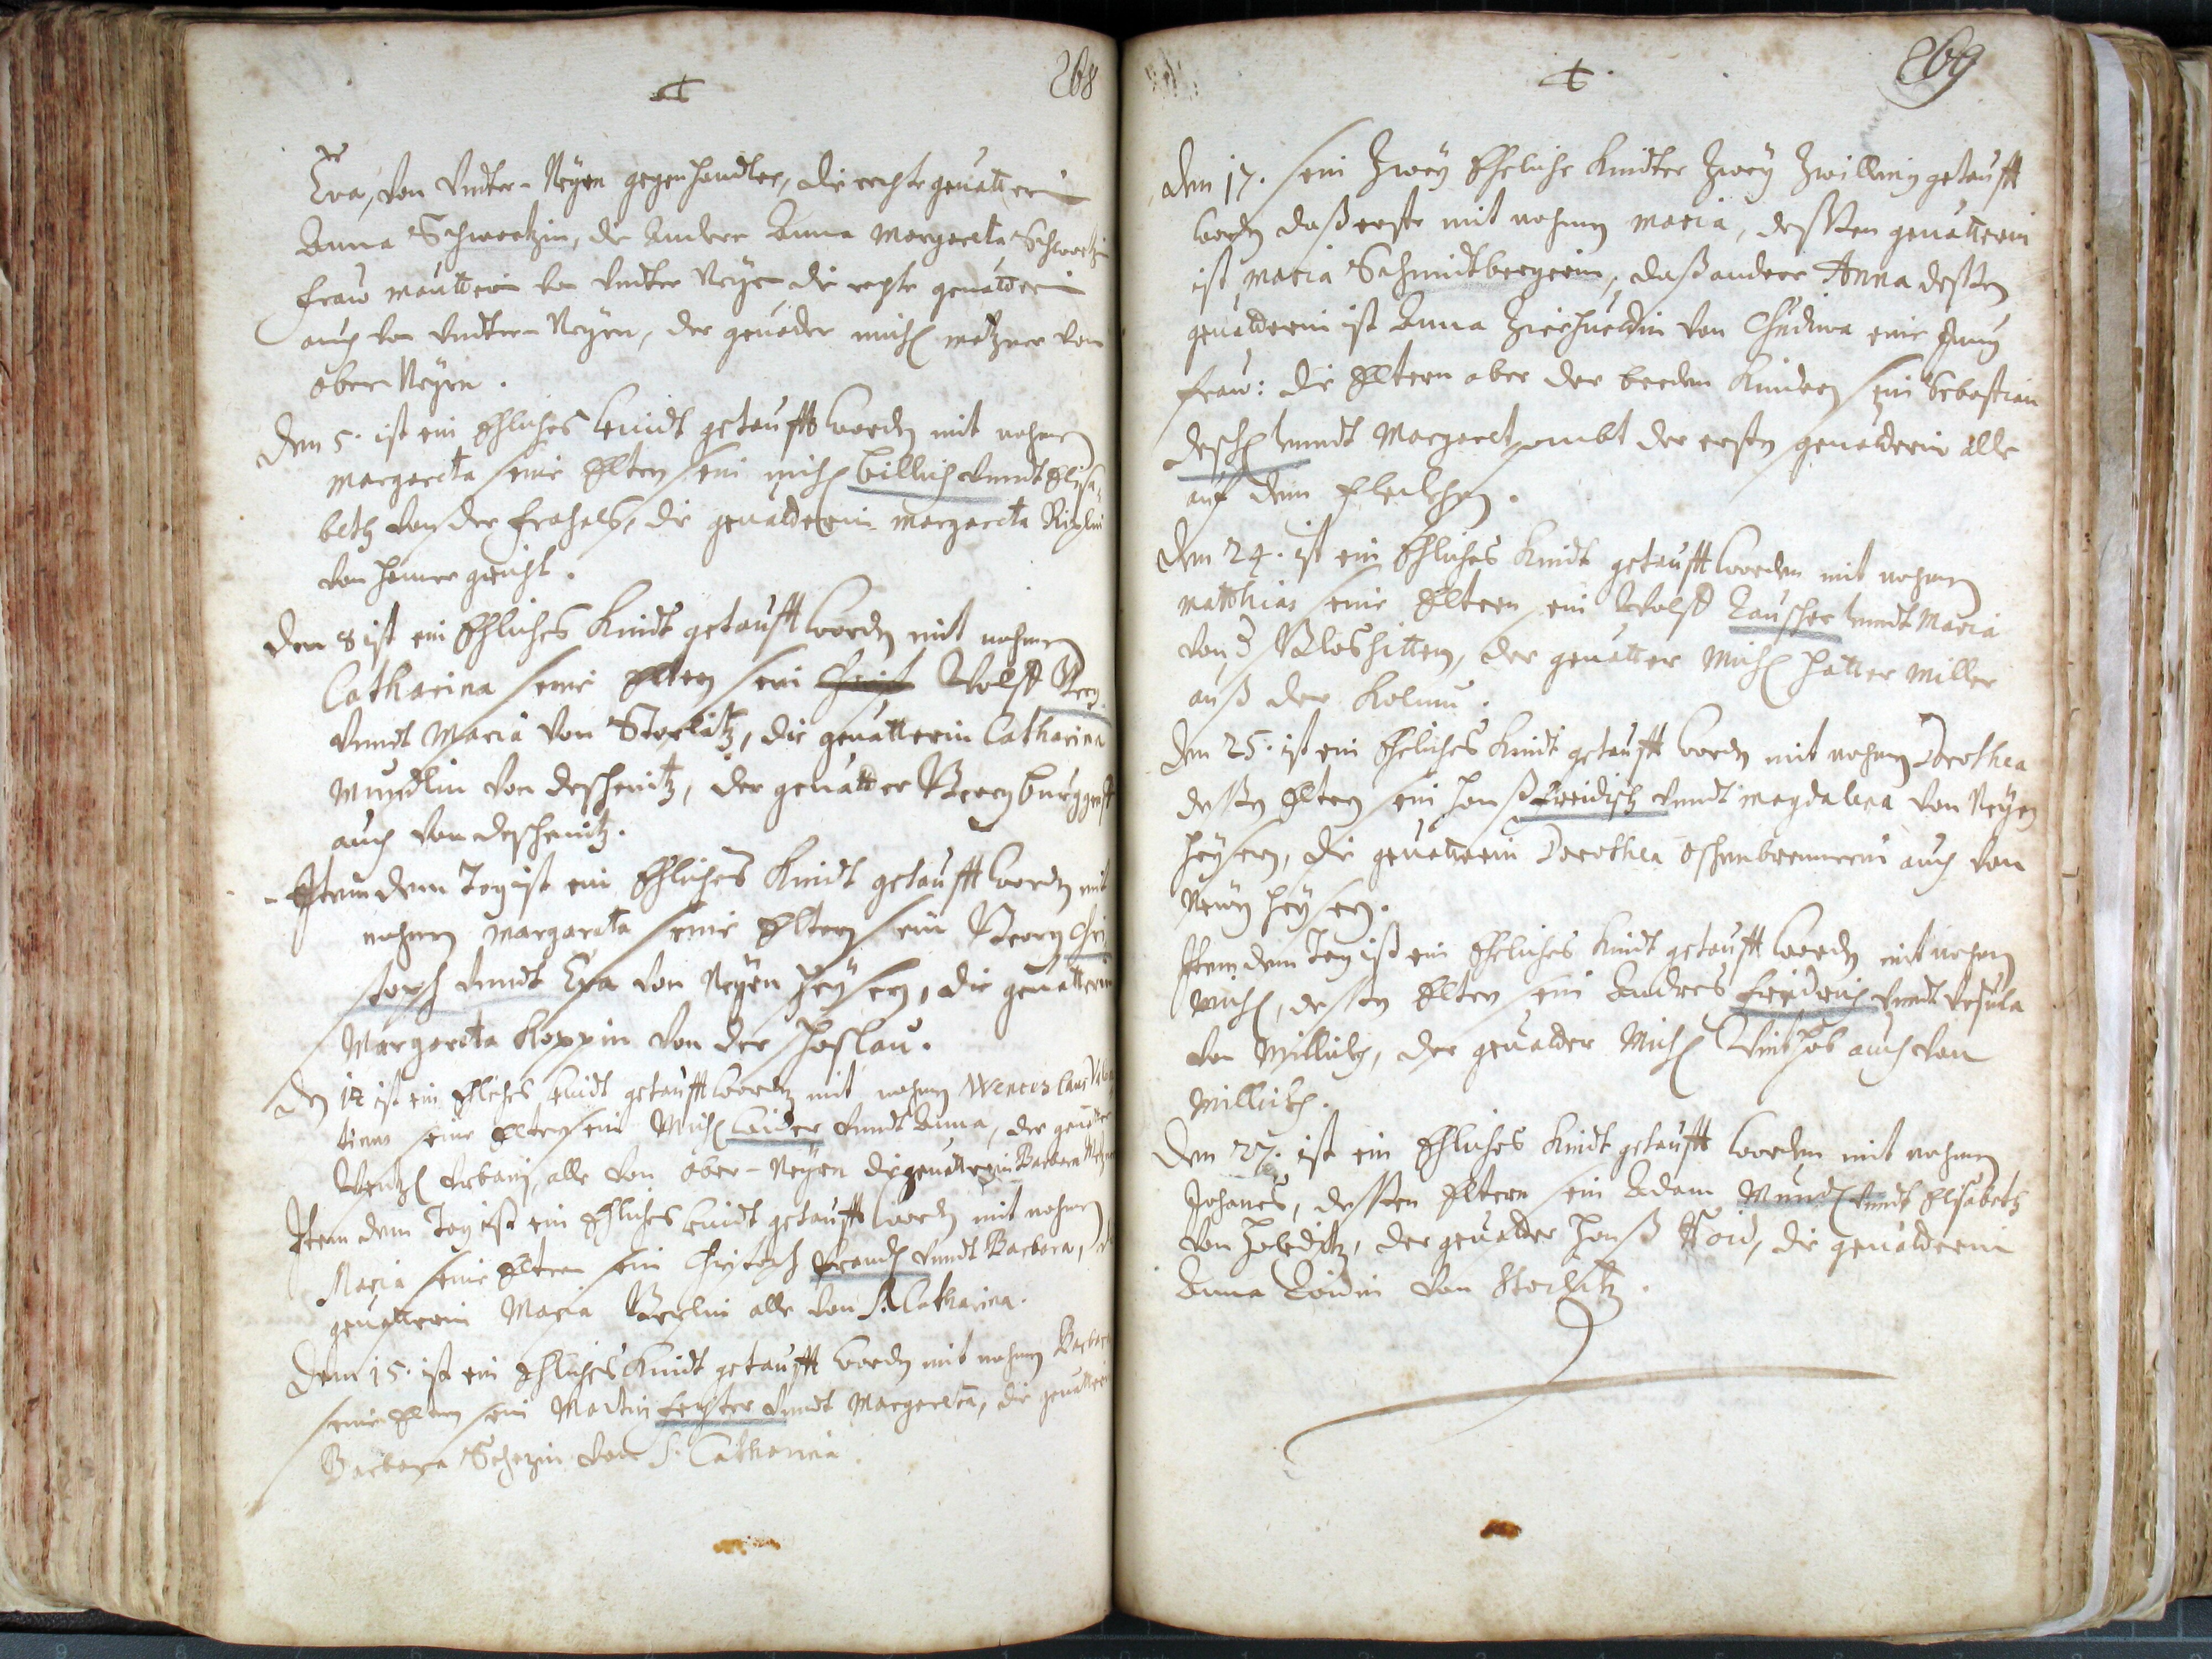 268
Eva, von Vndter-Neÿrn gegenhandler, die erste geuatterin
Anna Schwartzin, die Andere Anna Margareta Schwartzin
fraw von Vndter Neÿrn die geuatterin
auch von Vndter-Neÿrn, der geuader Michl Metzner von
ober Neÿrn.
Den 5. ist ein Ehliches Kindt getaufft worden mit nahmen
Margareta seine Eltern sein Michl Billich vnndt Elisa-
beth von der die geuatterin Margareta
von Hamer
Den 8 ist ein Ehliches Kindt getaufft worden mit nahmen
Catharina seine Eltern sein Wolff
vnndt Maria von Storlitz, die geuatterin Catharina
Mundlin von Deschenitz, der geuatter Georg Burggraff
auch von Deschenitz.
Item dem Tag ist ein Ehliches Kindt getaufft worden mit
nahmen Margareta seine Eltern sein Georg Chri-
stoph vnndt Eva von Neÿen Heÿsern, die geuatterin
Margareta Koppin von der Hoslau.
Den 14 ist ein Ehliches Kindt getaufft worden mit nahmen Wenceslaus Valen
tinus seine Eltern sein Michl Laider vnndt Anna, der geuatter
Wenzl Urbann, alle von Ober-Neÿrn die geuatterin Barbara
Item dem Tag ist ein Ehliches Kindt getaufft worden mit nahmen
Maria seine Eltern sein Christoph Brandl vnndt Barbara, die
geuatterin Maria alle von S. Catharina.
Den 15. ist ein Ehliches Kindt getaufft worden mit nahmen Barbara
seine Eltern sein Martin Feyster vnndt Margareta, die geuatterin
Barbara von S. Catharina.
269
Den 17. sein Zweÿ Eheliche Kindter Zweÿ Zwilling getaufft
worden daß erste mit nahmen Maria, dessen geuatterin
ist Maria Schmidtbergerin, daß andere Anna dessen
geuatterin ist Anna von Chudiwa eine Jung
fraw: die Eltern aber der beeden Kinder sein Sebastian
Deschl vnndt Margaret sambt der ersten geuatterin alle
auß dem
Den 24. ist ein Ehliches Kindt getaufft worden mit nahmen
Matthias seine Eltern sein Wolff Rauscher vnndt Maria
von Gloshitten, der geuatter Michl Hatter Miller
auß der Kolmu.
Den 25. ist ein Eheliches Kindt getaufft worden mit nahmen Dorothea
dessen Eltern sein Hanß vnndt Magdalena von Neÿen
Heÿsern, die geuatterin Dorothea Oschenbrennerin auch von
Neuen Heÿsern.
Item dem Tag ist ein Eheliches Kindt getaufft worden mit nahmen
Michl, dessen Eltern sein Andres Fridrich vnndt Vrsula
von Millick, der geuatter Michl auch von
Millick.
Den 27. ist ein Ehliches Kindt getaufft worden mit nahmen
Johanes, dessen Eltern sein Adam Mundl vnndt Elisabeth
von Holleditz, der geuatter Hanß die geuatterin
Anna von Storlitz.